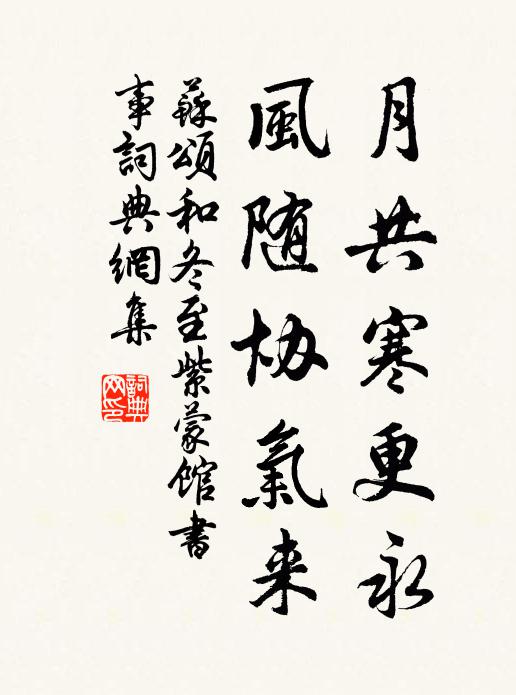 月共寒更永
風随协氣来
蘇頌和冬至紫蒙館書
事詞典網集
詞典网印